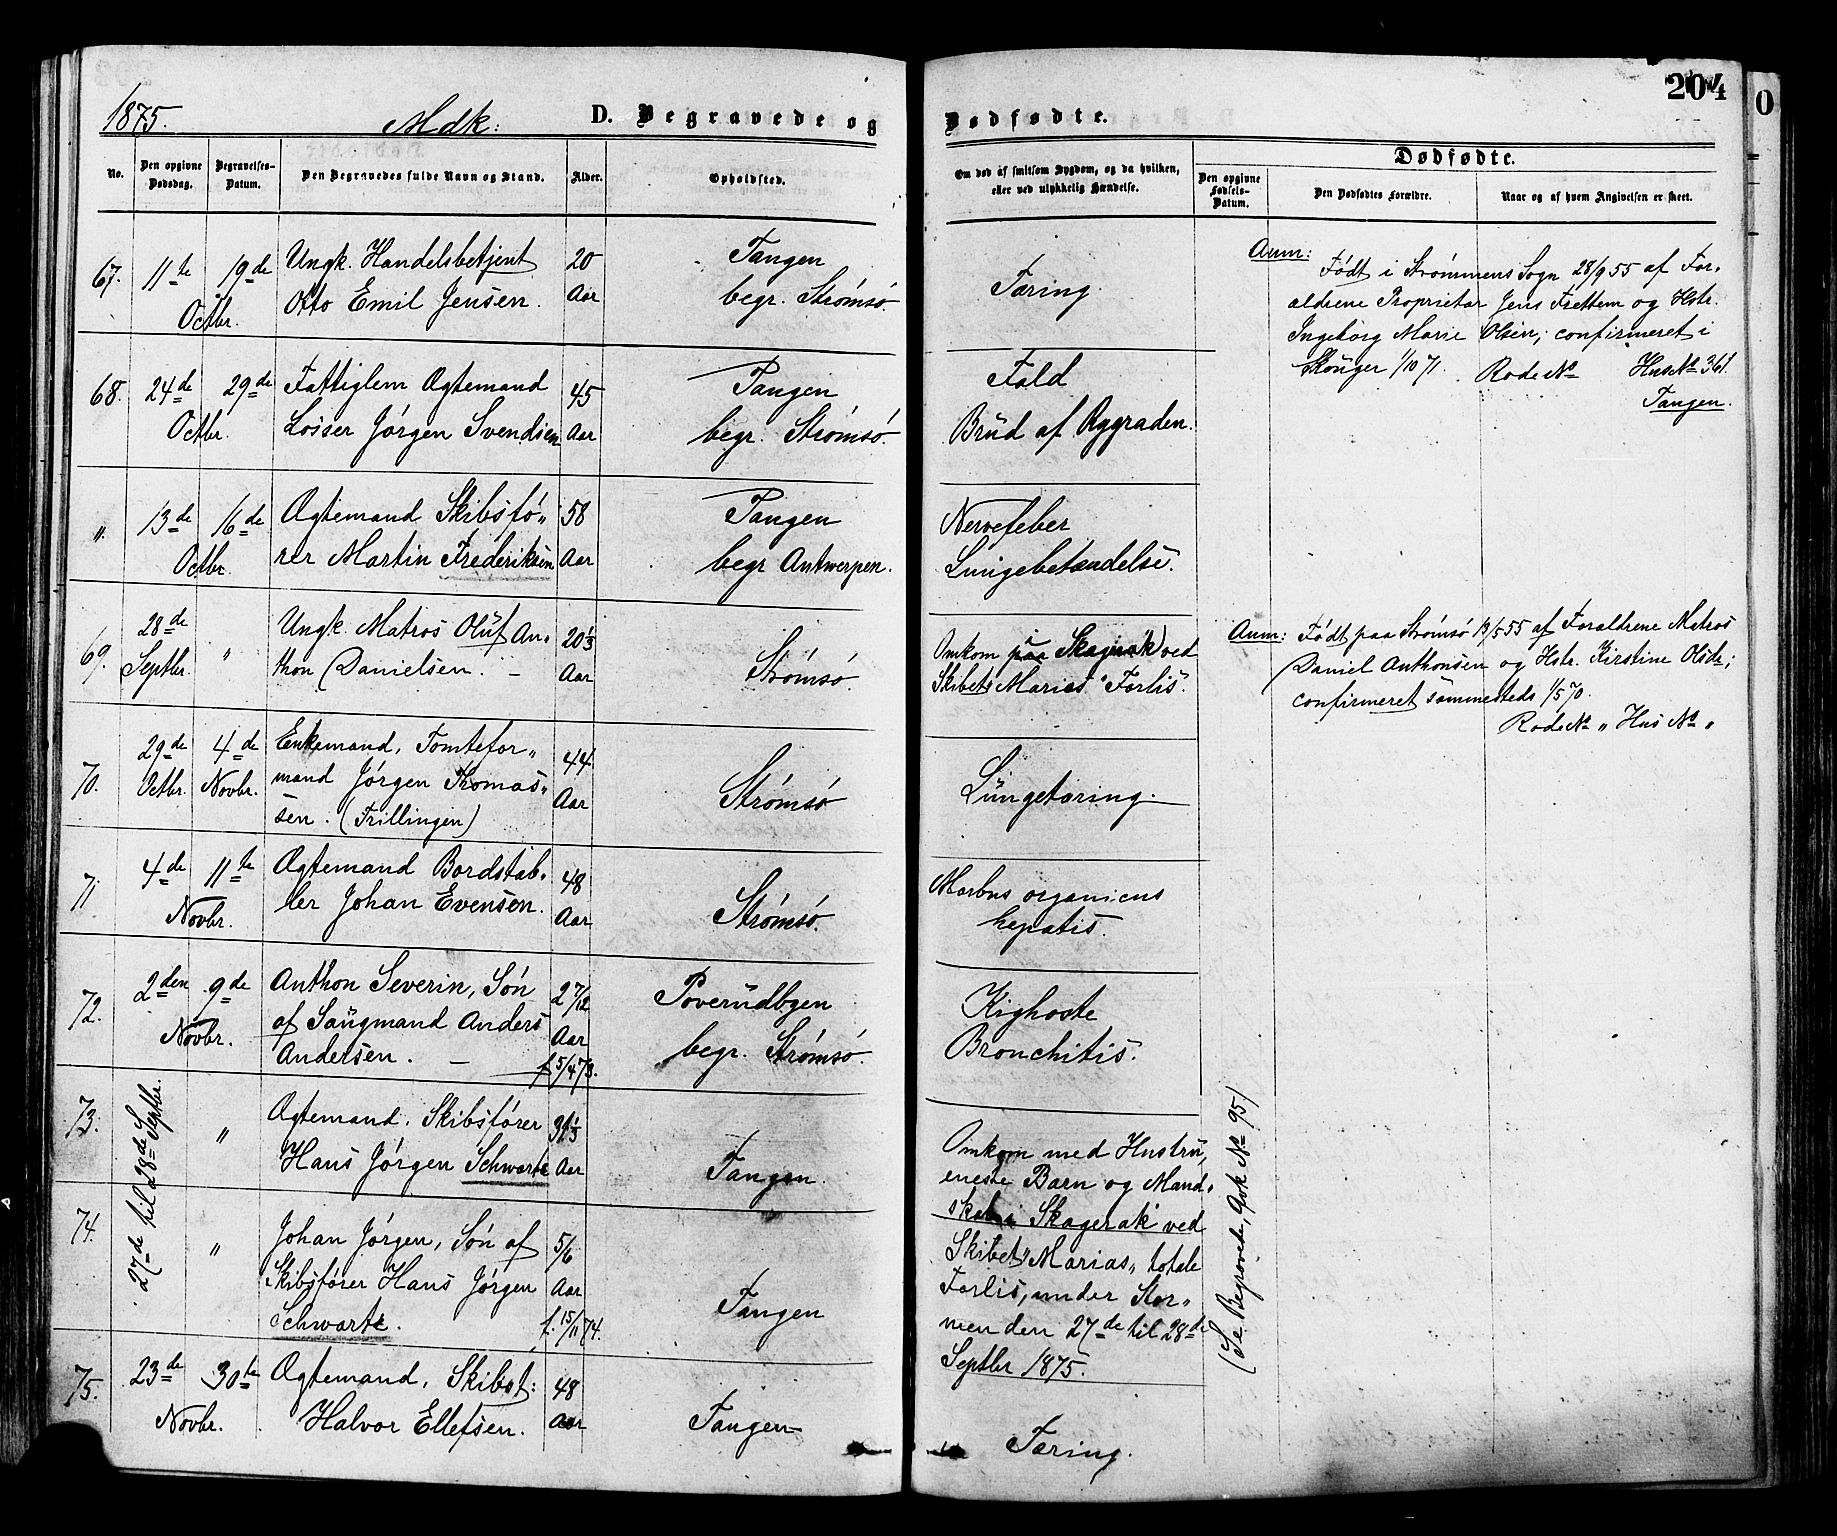 204
0
1875.
Mdk:
D. Begravede og
Dødfødte.
No.
Den opgivne Dødsdag.
Begravelses-Datum.
Den Begravedes fulde Navn og Stand.
Alder.
Opholdsted.
Om død af smitsom Sygdom, og da hvilken,
eller ved ulykkelig Hændelse.
Dødfødte.
Den opgivne Fødsels-Datum.
Den Dødfødtes Forældre.
Naar og af hvem Angivelsen er skeet.
67. 11te 19de Ungk. Handelsbetjent 20 Tangen
Octbr. Otto Emil Jensen. Aar begr. Strømsø.
Tæring.
Anm: Født i Strømmens Sogn 28/9 55 af For-
ældrene Proprietær Jens Frettem og Hstr.
Ingeborg Marie Olsen; confirmeret i
Skouger 1/10 71. Rode No Hus No 361.
Tangen.
68. 24de 29de Fattiglem Ægtemand 45 Tangen
Octbr. Losser Jørgen Svendsen Aar begr. Strømsø.
Fald
Brud af Rygraden.
". 13de 16de Ægtemand Skibsfø- 58 Tangen
Octbr. rer Martin Frederiksen Aar begr Antwerpen.
Nervefeber
Lungebetændelse.
69. 28de Septbr. " Ungk. Matros Oluf An- 20 1/3
thon (Danielsen. – Aar Strømsø.
Omkom paa Skagerak) ved
Skibet "Marias" Forlis.
Anm: Født paa Strømsø 19/5 55 af Forældrene Matros
Daniel Anthonsen og Hstr. Kirstine Olsdr;
confirmeret sammesteds 1/5 70.
Rode No " Hus No "
70. 29de Octbr. 4de Novbr. Enkemand, Tomtefor- 44
mand Jørgen Thomas- Aar Strømsø
sen. (Trillingen)
Lungetæring.
71 4de 11te Ægtemand Bordstab- 48
Novbr. ler Johan Evensen. Aar Strømsø.
Morbus organicus
hepatis.
72. 2den 9de Anthon Severin, Søn 2 7/12 Poverudbyen
Novbr. af Saugmand Anders Aar
Andersen. – f. 5/4 73. begr. Strømsø.
Kighoste
Bronchitis.
73. 27de til 28de Septbr. " Ægtemand. Skibsfører 31 1/3
Hans Jørgen Schwartz Aar Tangen.
Omkom med Hustru,
eneste Barn og Mand-
skab i Skagerak ved
Skibet "Marias" totale
Forlis, under Stor-
men den 27de til 28de
Septbr 1875.
(Se Begravede, Qvk No 95)
74. " Johan Jørgen, Søn af 5/6
Skibsfører Hans Jørgen Aar
Schwartz. f. 15/11 74. Tangen
75. 23de 30te Ægtemand, Skibst: 48
Novbr. Halvor Ellefsen. Aar Tangen
Tæring.